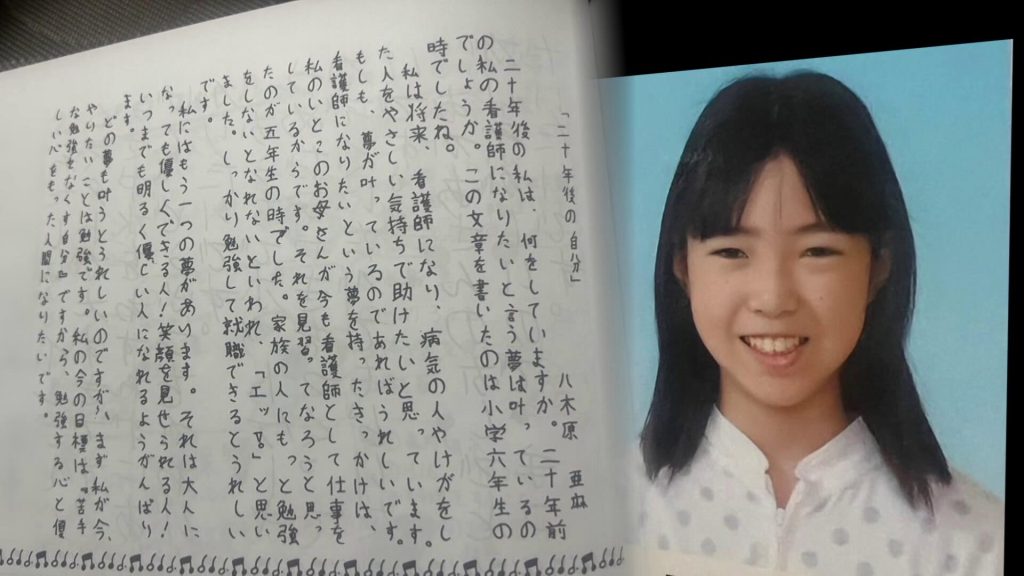 「二十年後の自分」
八木原 亜麻
二十年後の私は、何をしていますか。二十年前
の私の看護師になりたいと言う夢は叶っているの
でしょうか。この文章を書いたのは小学六年生の
時でしたね。
私は将来、看護師になり、病気の人やけがをし
た人をやさしい気持ちで助けたいと思っています。
もしも、夢が叶っているのであればうれしいです。
看護師になりたいという夢を持ったきっかけは、
私のいとこのお母さんが今も看護師として仕事を
しているからです。それを見習ってなろうと思っ
たのが五年生の時でした。家族の人にもっと勉強
をしないとなれないといわれ、「エッ!?」と思い
ました。しっかり勉強して就職できるとうれしい
です。
私にはもう一つの夢があります。それは大人に
なっても優しくできる人!笑顔を見せられる人!
いつまでも明るく優しい人になれるようがんばり
ます。
どの夢も叶うとうれしいのですが、まず私が今、
やりたいことは勉強です。私の今の目標は『苦手
な勉強もなくす自分』ですから、勉強する心と優
しい心をもった人間になりたいです。